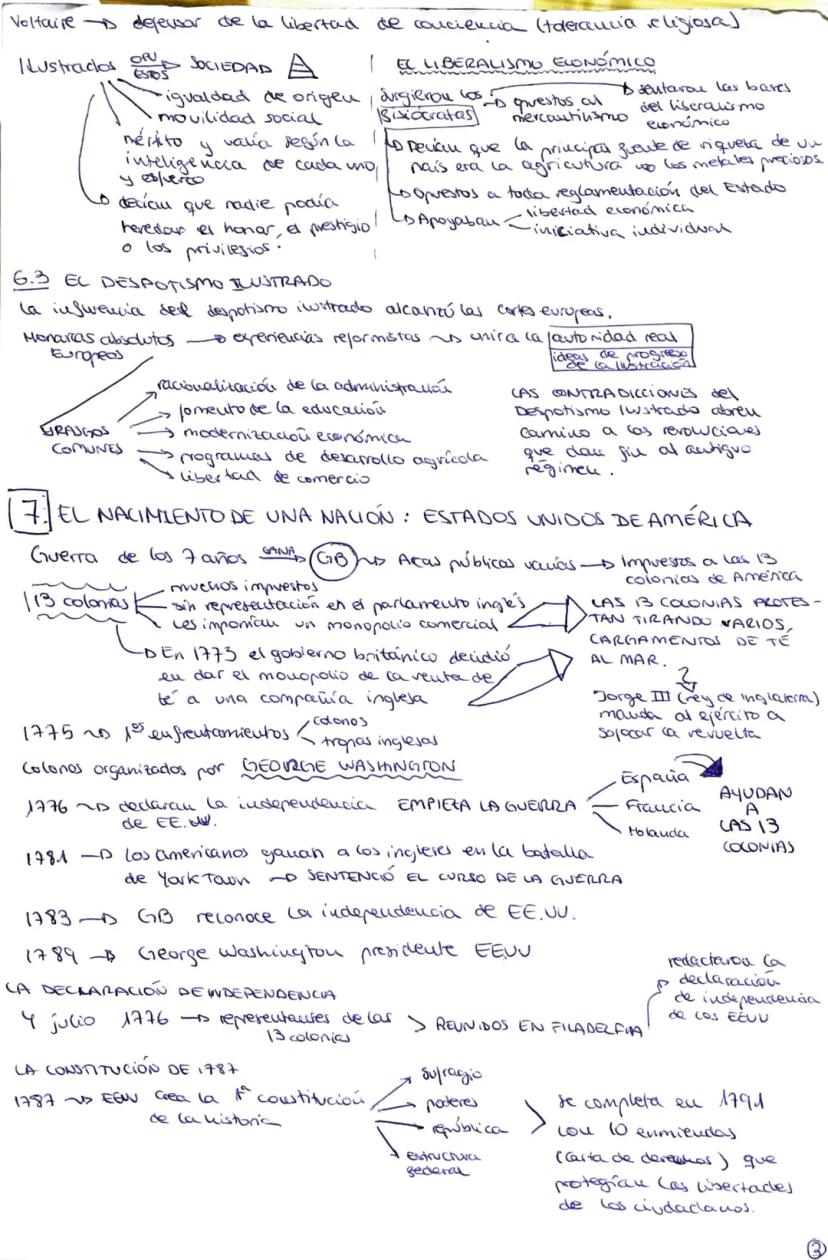 Voltaire → defensor de la libertad de conciencia (tolerancia religiosa)
Ilustrados OPUESTOS SOCIEDAD
igualdad de origen
movilidad social
mérito y valía según la
inteligencia de cada uno,
y esfuerzo
decían que nadie podía
heredar el honor, el prestigio
o los privilegios.
EL LIBERALISMO ECONÓMICO
Surgieron los
fisiócratas
→ opuestos al
mercantilismo
→ sentaron las bases
del liberalismo
económico
→ Decían que la principal fuente de riqueza de un
país era la agricultura no los metales preciosos.
→ Opuestos a toda reglamentación del Estado
→ Apoyaban
libertad económica
iniciativa individual
6.3 EL DESPOTISMO ILUSTRADO
La influencia del despotismo ilustrado alcanzó las cortes europeas.
Monarcas absolutos → experiencias reformistas → unir a la autoridad real
Europeos
ideas de progreso
de la ilustración
RASGOS
COMUNES
→ racionalización de la administración
→ fomento de la educación
→ modernización económica
→ programas de desarrollo agrícola
→ libertad de comercio
LAS CONTRADICCIONES del
Despotismo Ilustrado abren
camino a las revoluciones
que dan fin al antiguo
régimen.
7. EL NACIMIENTO DE UNA NACIÓN: ESTADOS UNIDOS DE AMÉRICA
Guerra de los 7 años GANA → GB → Arcas públicas vacías → Impuestos a las 13
colonias de América
13 colonias
muchos impuestos
sin representación en el parlamento inglés
Les imponían un monopolio comercial
→ En 1773 el gobierno británico decidió
en dar el monopolio de la venta de
té a una compañía inglesa
LAS 13 COLONIAS PROTES-
TAN TIRANDO VARIOS
CARGAMENTOS DE TÉ
AL MAR.
Jorge III (rey de Inglaterra)
manda al ejército a
sofocar la revuelta
1775 → 1os enfrentamientos
colonos
tropas inglesas
Colonos organizados por GEORGE WASHINGTON
1776 → declaran la independencia EMPIEZA LA GUERRA
de EE.UU.
España
Francia
Holanda
AYUDAN
A
LAS 13
COLONIAS
1781 → Los americanos ganan a los ingleses en la batalla
de YorkTown → SENTENCIÓ EL CURSO DE LA GUERRA
1783 → GB reconoce la independencia de EE.UU.
1789 → George Washington presidente EEUU
LA DECLARACIÓN DE INDEPENDENCIA
4 julio 1776 → representantes de las
13 colonias
> REUNIDOS EN FILADELFIA
redactaron la
declaración
de independencia
de los EEUU
LA CONSTITUCIÓN DE 1787
1787 → EEUU crea la 1ª constitución
de la historia
sufragio
poderes
república
estructura
federal
se completa en 1791
con 10 enmiendas
(carta de derechos) que
protegían las libertades
de los ciudadanos.
2